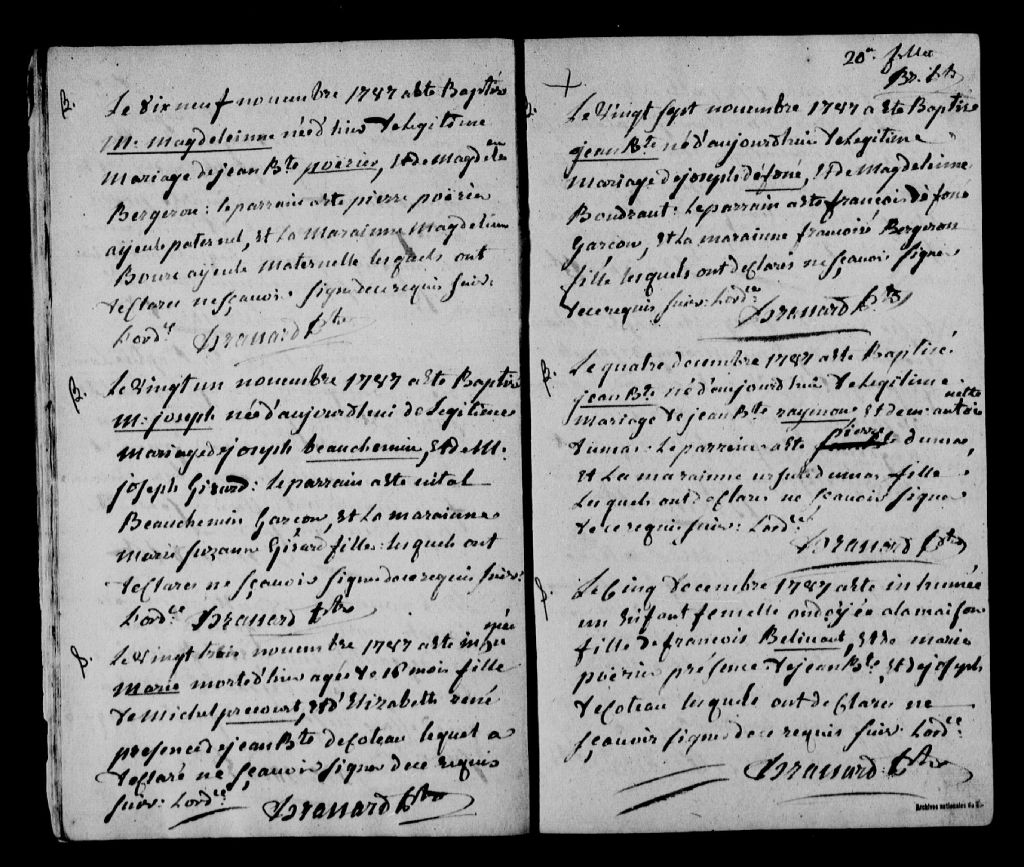 B.
Le Dix neuf novembre 1787 a Ete Baptisée
M: Magdeleinne née d'hier De Legitime
Mariage de jean Bte poërier, Et de Magdelenn
Bergeron: le parrain a ete pierre poërier
ayeule paternel, Et La Marainne Magdelenn
Boure ayeule Maternelle lesquels ont
declarer ne sçavoir signe de ce requis suiv:
Lordce Brassard Ptre
B.
Le Vingt un novembre 1787 a Ete Baptisée
M: joseph née d'aujourdhui de Legitime
mariage de joseph beauchemin, Et de M:
joseph Girard: le parrain a ete vital
Beauchemin Garçon, Et La marainne
Marie suzanne Girard fille: lesquels ont
declarer ne sçavoir signer de ce requis suiv:
Lordce Brassard Ptre
S.
Le Vingt trois novembre 1787 a ete inhumée
Marie morte d'hier agée de 16 mois fille
de Michel precourt, Et d'Elizabeth rené
presence de jean Bte decoteau lequel a
declaré ne sçavoir signer de ce requis
suiv: Lordce Brassard Ptre
20e. fllet
Br. Ptr
B.
Le Vingt sept novembre 1787 a Ete Baptisé
jean Bte né d'aujourdhui de Legitime
Mariage de joseph défoné, Et de Magdeleinne
Boudraut: le parrain a ete françois défoné
Garçon, Et La marainne françoise Bergeron
fille lesquels ont declarés ne sçavoir signer
de ce requis suiv: Lordce
Brassard Ptre
B.
Le quatre decembre 1787 a ete Baptisé
jean Bte né d'aujourdhui de Legitime
mariage de jean Bte raymond Et de m: antoinette
dumas: le parrain a ete pierre dumas,
Et La marainne ursule dumas fille,
lesquels ont declarer ne sçavoir signer
de ce requis suiv: Lordce
Brassard Ptre
S.
Le Cinq Decembre 1787 a ete inhumée
un Enfant femelle ondoyée a la maison
fille de francois Belinant, Et de marie
poërier présence de jean Bte, Et de joseph
decoteau lesquels ont declarer ne
sçavoir signer de ce requis suiv: Lordce
Brassard Ptre
Archives nationales du